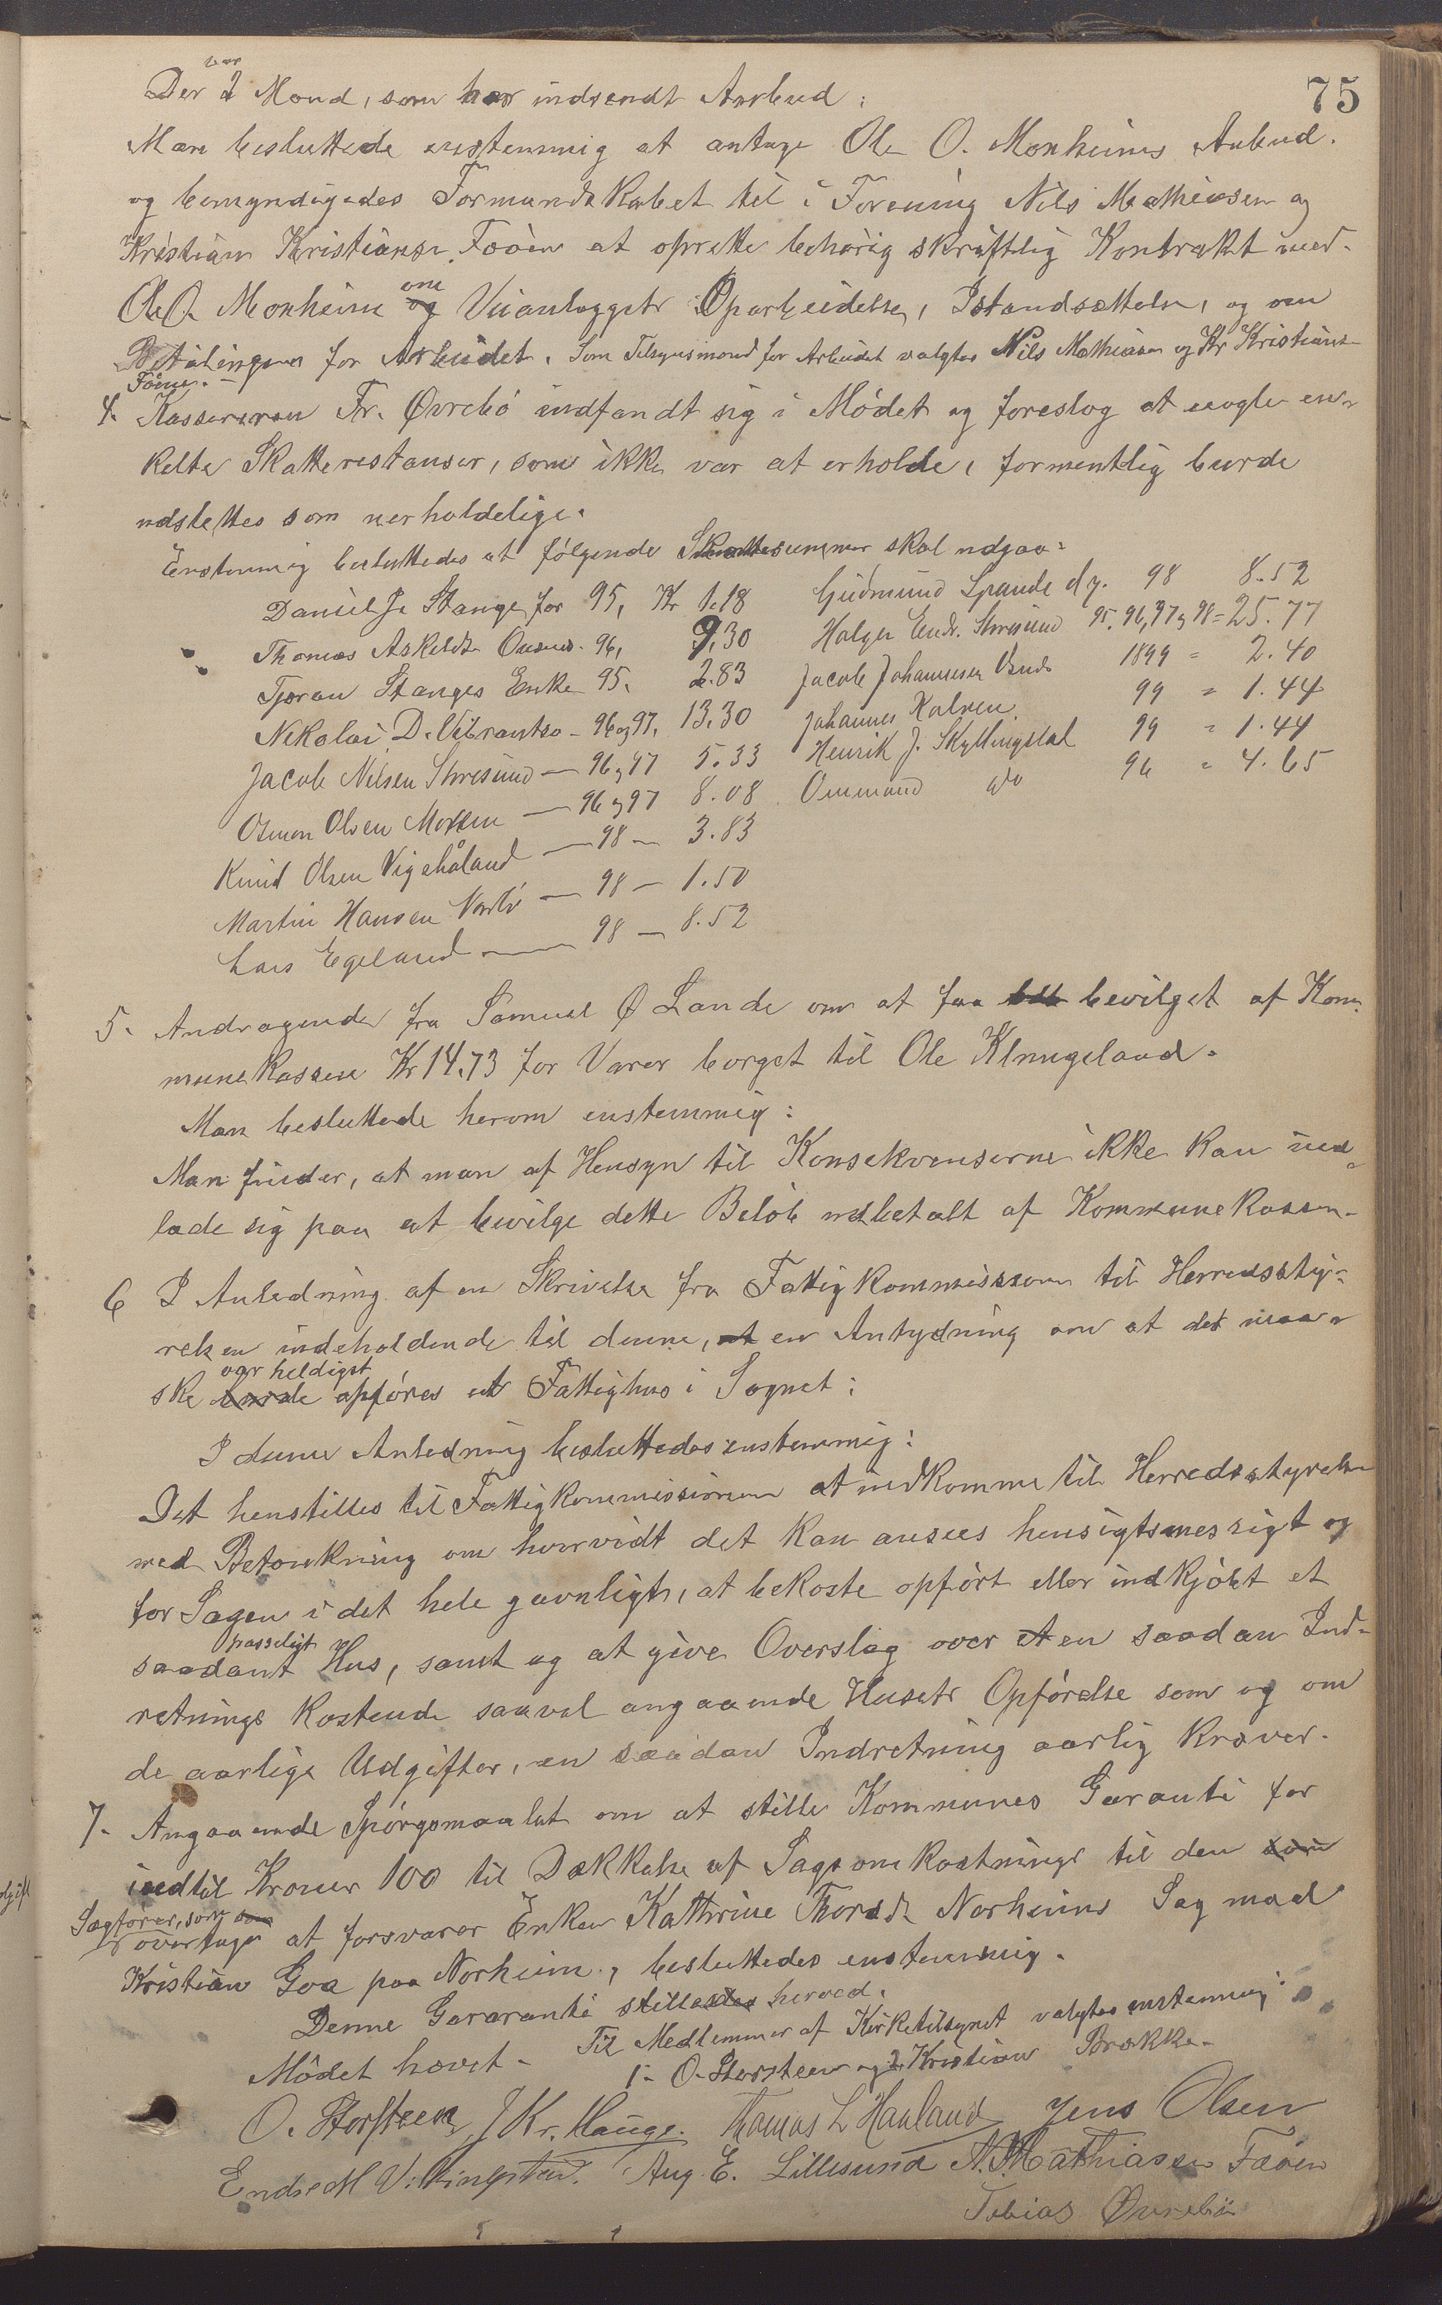 75
Der var 2 Mænd, som har indsendt Anbud:
Man besluttede enstemmig at antage Ole O. Monheims Anbud.
og bemyndigedes Formandskabet til i Forening Nils Mathiesen og
Kristian Kristiansen Foøen at oprette behørig skriftlig Kontrakt med
Ole O. Monheim om Veianlæggets Oparbeidelse, Istandsættelse, og om
Betalingen for Arbeidet. Som Tilsynsmænd for Arbeidet valgtes Nils Mathiasen og Kr Kristians-
Føen.
4. Kassereren Fr. Øvrebø indfandt sig i Mødet og foreslog at nogle en-
kelte Skatterestanser, som ikke var at erholde, formentlig burde
udslettes som uerholdelige.
Enstemmig besluttedes at følgende Skattesummer skal udgaa:
Daniel Js Stange for 95, Kr 1.18 Gudmund Spande dy. 98 8.52
Thomas Askelds. 96, 9,30 Holger Endr. Stresund 95, 96, 97 og 98 = 25.77
Tjøran Stanges Enke 95. 2.83 Jacob Johannesen 1899 = 2.40
Nikolai D. Vibrantsø - 96 og 97, 13.30 Johannes Kalven. 99 = 1.44
Jacob Nilsen Stresund — 96 og 97 5.33 Henrik J. Skyllingstal 99 = 1.44
Osmon Olsen — 96 og 97 8.08 Ommund do 96 = 4.65
Knud Olsen Vigehåland — 98 — 3.83
Martin Hansen — 98 — 1.50
Lars Egeland — 98 — 8.52
5. Andragende fra Samuel Ø Lande om at faa bevilget af Kom-
munekassen Kr 14.73 for Varer borget til Ole Klungeland.
Man besluttede herom enstemmig:
Man finder, at man af Hensyn til Konsekvenserne ikke kan ind-
lade sig paa at bevilge dette Beløb udbetalt af Kommunekassen.
6 I Anledning af en Skrivelse fra Fattigkommissionen til Herredssty-
relsen indeholdende til denne, en Antydning om at det maa-
ske var heldigst opføres et Fattighus i Sognet:
I denne Anledning besluttedes enstemmig:
Det henstilles til Fattigkommissionen at indkomme til Herredsstyrelsen
med Betænkning om hvorvidt det kan ansees hensigtsmessigt og
for Sagen i det hele gavnligt, at bekoste opført eller indkjøbt et
saadant passeligt Hus, samt og at give Overslag over en saadan Ind-
retnings Kostende saavel angaaende Husets Opførelse som og om
de aarlige Udgifter, en saadan Indretning aarlig kræver.
7. Angaaende Spørgsmaalet om at stille Kommunes Garanti for
indtil Kroner 100 til Dækkelse af Sagsomkostninge til den
Sagfører, som overtager at forsvarer Enken Kathrine Thorsd. Norheims Sag mod
Kristian Goa paa Norheim, besluttedes enstemmig.
Denne Gararanti stilles herved.
Mødet hævet - Til Medlemmer af Kirketilsynet valgtes enstemmig:
1. O. Storsteen og 2. Kristian Brække.
O. Storsteen J Kr. Hauge. Thomas L Hauland Jens Olsen
Endre M Vikingstad. Aug. E. Lillesund N. Mathiassen Føøen
Tobias Øvrebø